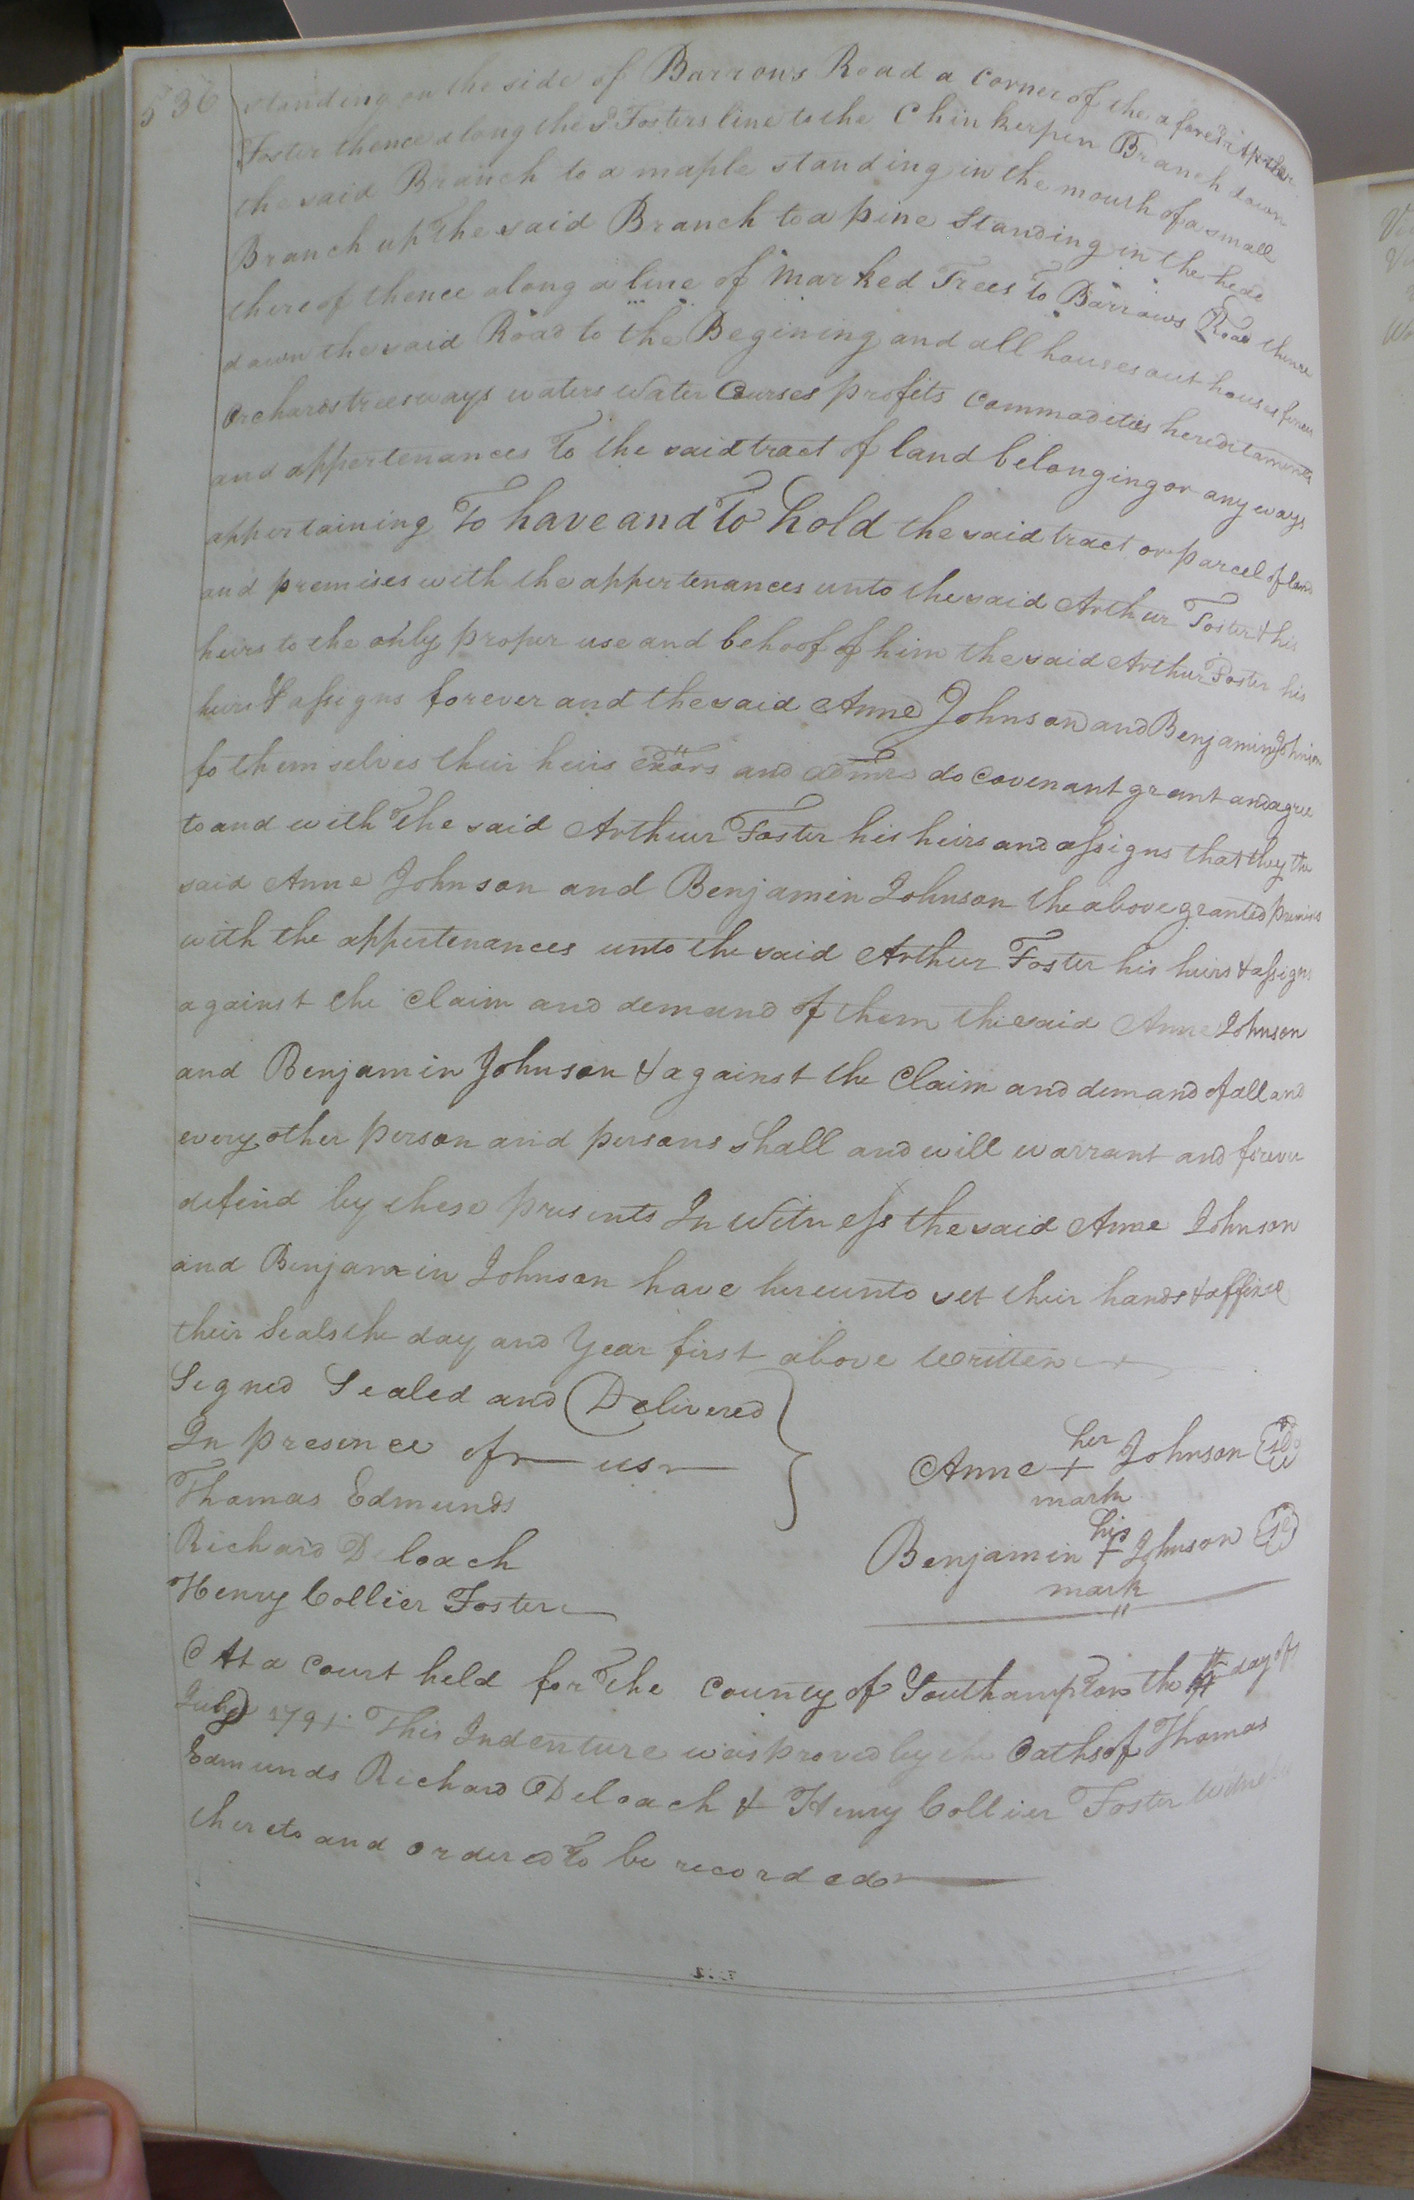 536
standing on the side of Barrows Road a corner of the aforesd Arthur
Foster thence along the sd Fosters line to the Chinkerpen Branch down
the said Branch to a maple standing in the mouth of a small
Branch up the said Branch to a pine Standing in the hede
thereof thence along a line of marked Trees To Barrows Road thence
down the said Road to the Begining and all houses out houses fences
orchards trees ways waters water Courses profits Commodities hereditaments
and appertenances To the said tract of land belonging or any ways
appertaining To have and To hold the said tract or parcel of land
and premises with the appertenances unto the said Arthur Foster & his
heirs to the only proper use and behoof of him the said Arthur Foster his
heirs & assigns forever and the said Anne Johnson and Benjamin Johnson
fo themselves their heirs exõrs and admrs do Covenant grant and agree
to and with the said Artheur Foster his heirs and assigns that they the
said Anne Johnson and Benjamin Johnson the above granted premises
with the appertenances unto the said Arthur Foster his heirs & assigns
against the Claim and demand of them the said Anne Johnson
and Benjamin Johnson & against the Claim and demand of all and
every other person and persons shall and will warrant and forever
defend by these presents In Witness the said Anne Johnson
and Benjamin Johnson have hereunto set their hands & affixed
their Seals the day and Year first above Written
Signed Sealed and Delivered
In presence of us
Thomas Edmunds
Richard Deloach
Henry Collier Foster
her
Anne + Johnson
mark
his
Benjamin + Johnson
mark
At a Court held for the County of Southampton the day of
July 1791 This Indenture was proved by the Oaths of Thomas
Edmunds Richard Deloach & Henry Collier Foster witness
thereto and ordered to be recorded